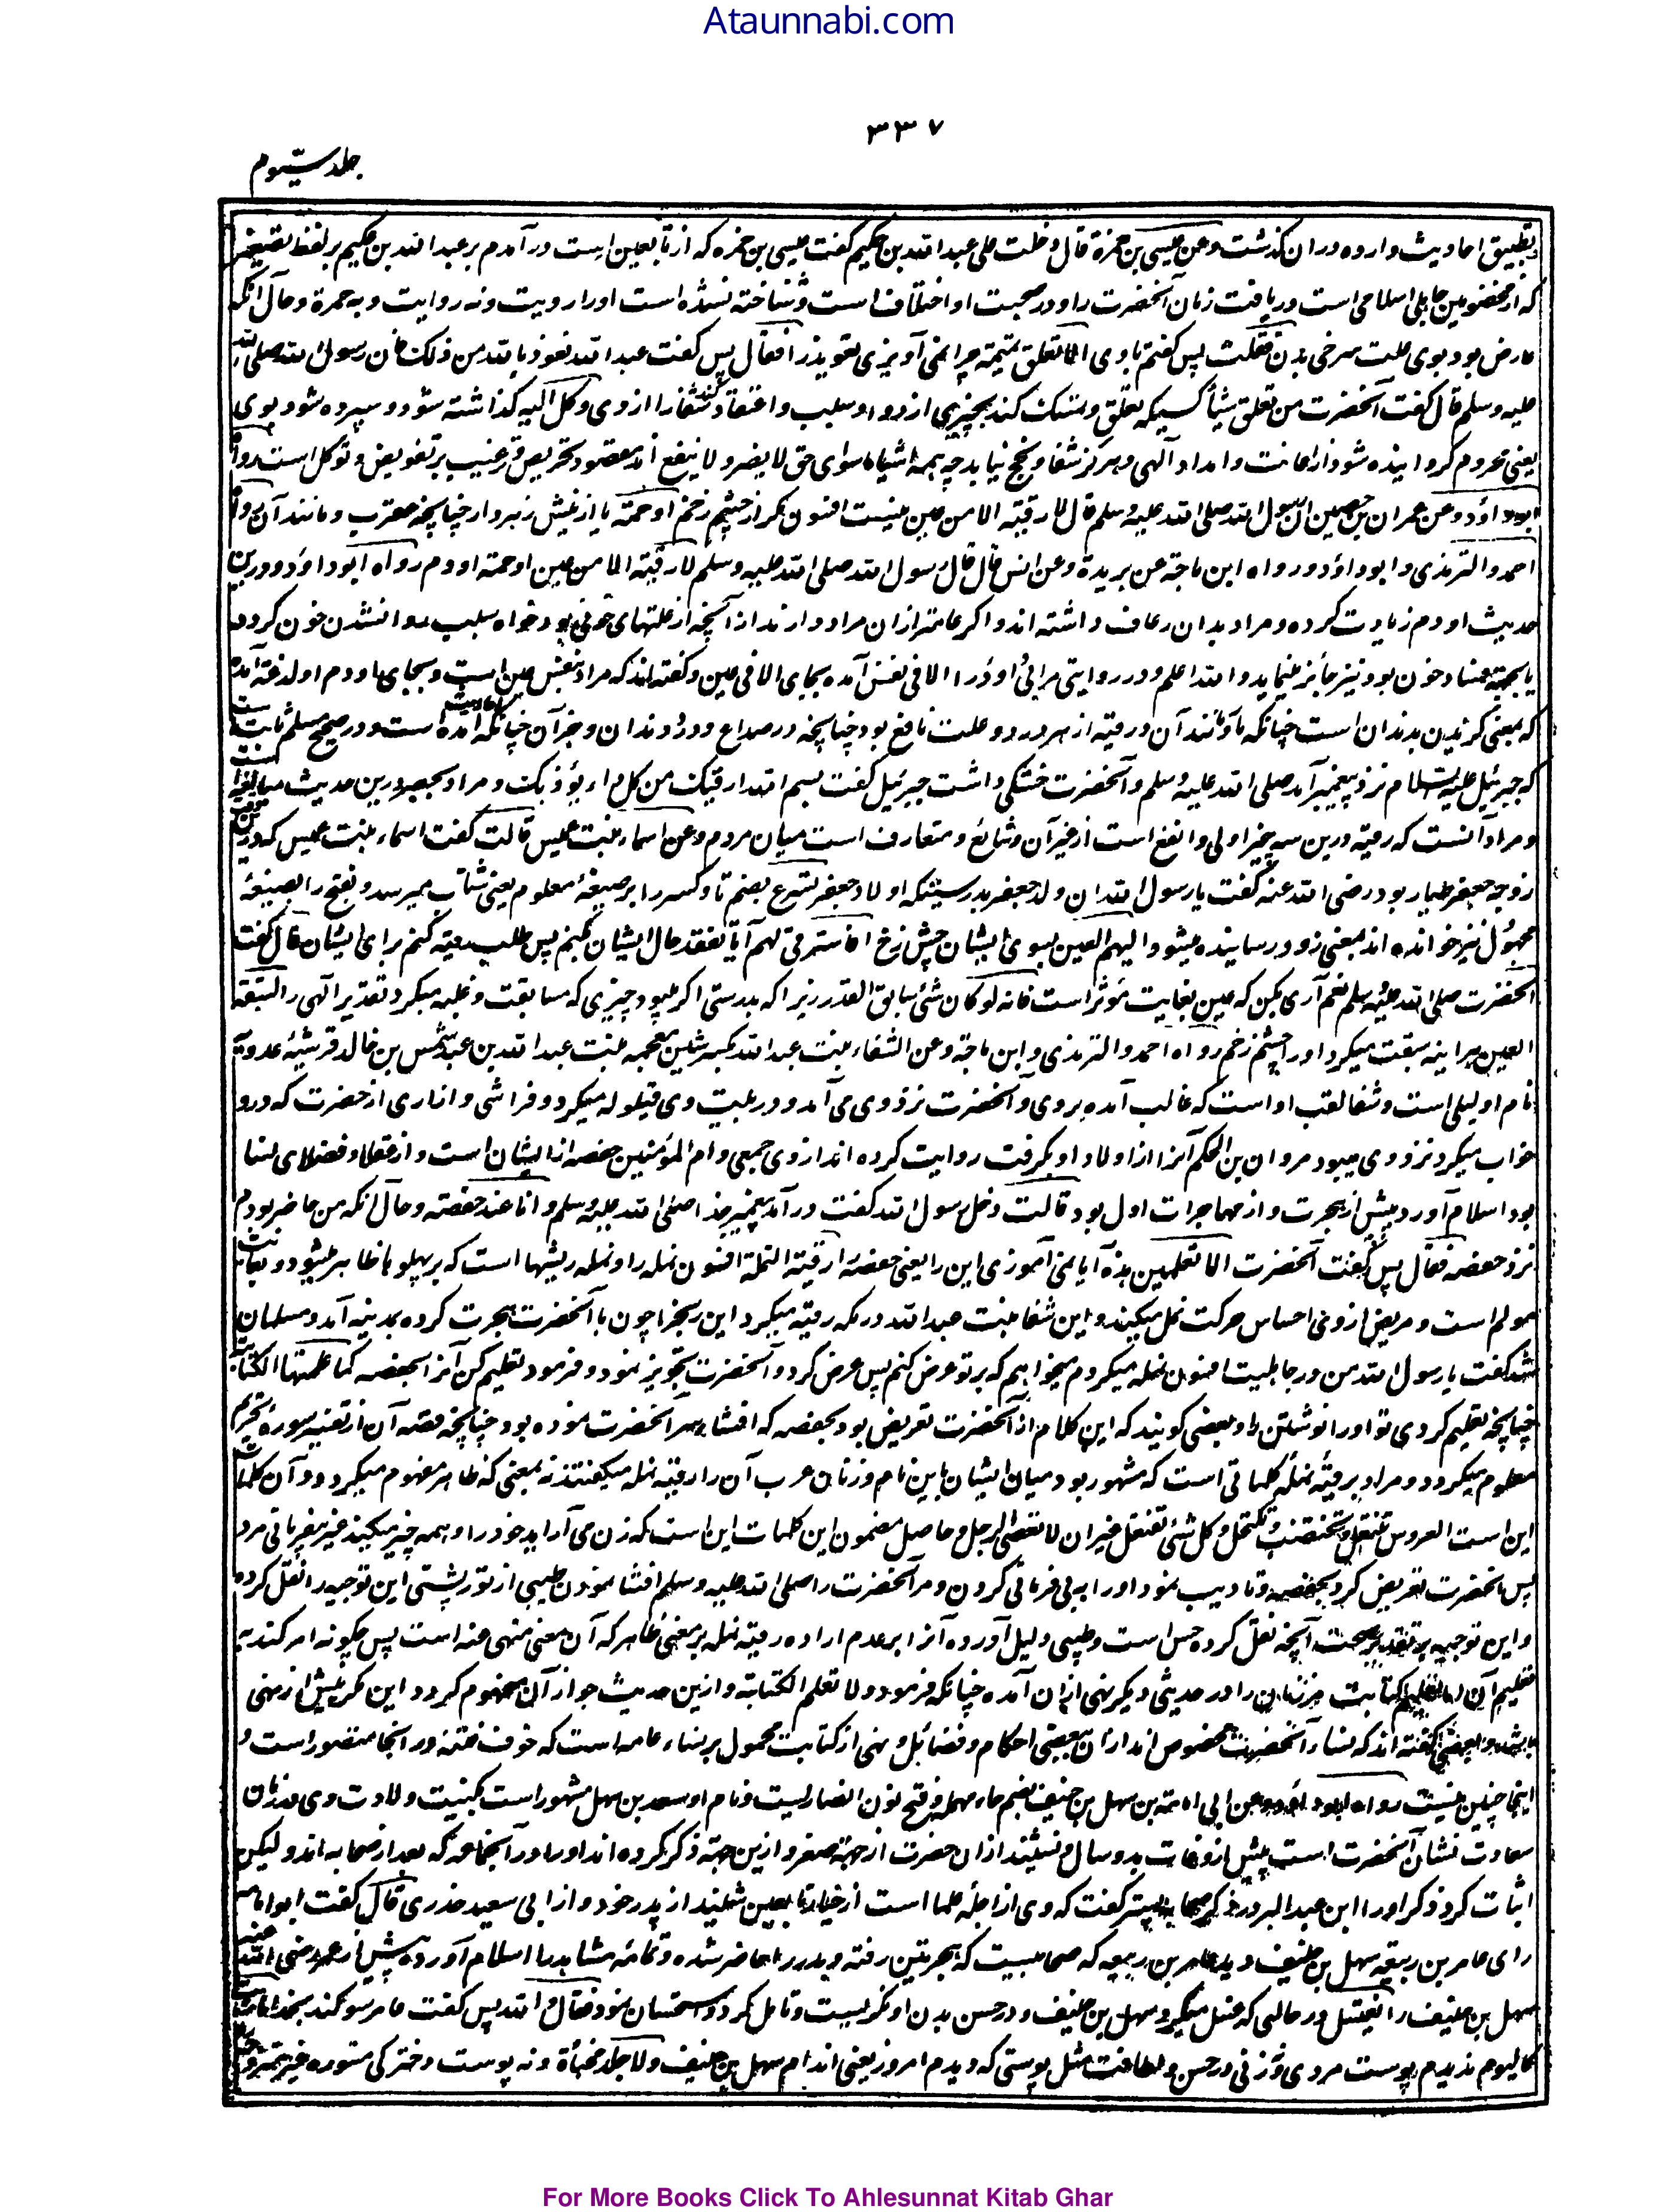 Ataunnabi.com
٣٣٧
جلد سیوم
تطبیق احادیث وارده دران گذشت وعن عیسی بن حمزة قال دخلت علی عبدالله بن حکیم گفت عیسی بن حمزه که از تابعین است درآمدم بر عبدالله بن عکیم بر لفظ تصغیر
که از مخضرمین جاهلی اسلامی است دریافت زمان آنحضرت را و در صحبت او اختلاف است و شناخته نشده است او را رویت و نه روایت وبه حمرة و حال آنکه
عارض بود بوی علت سرخی بدن فقلت پس گفتم با وی الا تعلق تمیمة چرا نمی آویزی تعویذ را فقال پس گفت عبدالله نعوذ بالله من ذلک فان رسول الله صلی الله
علیه وسلم قال گفت آنحضرت من تعلق شیئا کسیکه تعلق و تمسک کند بچیزی از دوا و سلب و اعتقاد کند شفا را از وی وکل الیه گذاشته شود و سپرده شود بوی
یعنی محروم گردانیده شود از اعانت و امداد آلهی و هرگز شفا و نجح نیابد چه همه اشیاء سوای حق لا یضر و لا ینفع اند مقصود تحریص و ترغیب بر تفویض و توکل است رواه
ابوداؤد وعن عمران بن حصین ان رسول الله صلی الله علیه وسلم قال لا رقیة الا من عین نیست افسون مگر از چشم زخم او حمة یا از نیش زهردار چنانچه عقرب و مانند آن رواه
احمد والترمذی و ابوداؤد ورواه ابن ماجة عن بریدة وعن انس قال قال رسول الله صلی الله علیه وسلم لا رقیة الا من عین او حمة او دم رواه ابوداؤد و درین
حدیث او دم زیادت کرده و مراد بدان رعاف داشته اند و اگر عام‌تر ازان مراد دارند از آنچه از علتهای خونی بود خواه بسبب روا نشدن خون گردد
یا بجهة فساد خون بود نیز جائز مینماید والله اعلم و در روایتی مر ابی داؤد را الا فی نفس آمده بجای الا فی عین و گفته اند که مراد بنفس عین است و بجای او دم او لدغة آمده
که بمعنی گزیدن بدندان است چنانکه مار و مانند آن و رقیه از هر درد و علت نافع بود چنانچه در صداع و درد دندان و جز آن چنانکه احادیث آمده است و در صحیح مسلم ثابت است
که جبرئیل علیه السلام نزد پیغمبر آمد صلی الله علیه وسلم و آنحضرت خستگی داشت جبرئیل گفت بسم الله ارقیک من کل داء یؤذیک و مراد بحصر درین حدیث مبالغه است
و مراد آنست که رقیه درین سه چیز اولی و انفع است از غیر آن و شائع و متعارف است میان مردم وعن اسماء بنت عمیس قالت گفت اسماء بنت عمیس که درین وقت
زوجه جعفر طیار بود رضی الله عنه گفت یا رسول الله ان ولد جعفر بدرستیکه اولاد جعفر تسرع بضم تا و کسر را بر صیغهٔ معلوم یعنی شتاب میرسد و بفتح را بصیغهٔ
مجهول نیز خوانده اند بمعنی زود رسانیده میشود الیهم العین بسوی ایشان چشم زخ افاسترقی لهم آیا تفقد حال ایشان بکنم پس طلب رقیه کنم برای ایشان قال گفت
آنحضرت صلی الله علیه وسلم نعم آری بکن که عین بغایت مؤثر است فانه لو کان شئ سابق القدر زیرا که بدرستی اگر میبود چیزی که مسابقت و غلبه میکرد تقدیر آلهی را لسبقته
العین هرآینه سبقت میکرد او را چشم زخم رواه احمد والترمذی وابن ماجة وعن الشفاء بنت عبدالله بکسر شین معجمه بنت عبدالله بن عبد شمس بن خالد قرشیهٔ عدویه
نام او لیلی است و شفا لقب او است که غالب آمده بروی و آنحضرت نزد وی می آمد و در بیت وی قیلوله میکرد و فراشی و ازاری از حضرت که درو
خواب میکرد نزد وی میبود مروان بن الحکم آنرا از اولاد او بگرفت روایت کرده اند از وی جمعی و ام المؤمنین حفصه از ایشان است و از عقلا و فضلای نسا
بود اسلام آورد پیش از هجرت و از مهاجرات اول بود قالت دخل رسول الله گفت درآمد پیغمبر خدا صلی الله علیه وسلم وانا عند حفصة و حال آنکه من حاضر بودم
نزد حفصه فقال پس گفت آنحضرت الا تعلمین هذه آیا نمی آموزی این را یعنی حفصه را رقیة النملة افسون نمله را و نمله ریشها است که بر پهلوها ظاهر میشود و بغایت
مولم است و مریض از وی احساس حرکت نمل میکند و این شفا بنت عبدالله در مکه رقیه میکرد این رنج را چون با آنحضرت هجرت کرده بمدینه آمد و مسلمان
شد گفت یا رسول الله من در جاهلیت افسون نمله میکردم میخواهم که بر تو عرض کنم پس عرض کرد و آنحضرت تجویز نمود و فرمود تعلیم کن آنرا بحفصه کما علمتها الکتابة
چنانچه تعلیم کردی تو او را نوشتن و بعضی گویند که این کلام از آنحضرت تعریض بود بحفصه که افشاء سر آنحضرت نموده بود چنانچه قصه آن از تفسیر سورهٔ تحریم
معلوم میگردد و مراد برقیهٔ نمله کلماتی است که مشهور بود میان ایشان باین نام و زنان عرب آن را رقیه نمله میگفتند نه بمعنی که ظاهر مفهوم میگردد و آن کلمات
این است العروس تنتعل و تختضب و تکتحل و کل شئ تفتعل غیر ان لا تعصی الرجل و حاصل مضمون این کلمات این است که زن می آراید خود را و همه چیز میکند غیر بیفرمانی مرد
پس آنحضرت تعریض کرد بحفصه و تادیب نمود او را به بی فرمانی کردن و مر آنحضرت را صلی الله علیه وسلم افشا نمودن طیبی از تورپشتی این توجیه را نقل کرده
و این توجیه بر تقدیر صحت آنچه نقل کرده حسن است و طیبی دلیل آورده آنرا بر عدم اراده رقیه نمله بر معنی ظاهر که آن معنی منهی عنه است پس چگونه امر کند به
تعلیم آن اما تعلیم کتابت مر زنان را در حدیثی دیگر نهی ازان آمده چنانکه فرمود ولا تعلم الکتابة و ازین حدیث جواز آن مفهوم گردد این مگر پیش از نهی
باشد و بعضی گفته اند که نساء آنحضرت مخصوص اند ازان ببعضی احکام و فضائل و نهی از کتابت محمول بر نساء عامه است که خوف فتنه در آنجا متصور است و
اینجا چنین نیست رواه ابوداؤد وعن ابی امامة بن سهل بن حنیف بضم حاء مهمله و فتح نون انصاریست و نام او سعد بن سهل مشهور است بکنیت ولادت وی در زمان
سعادت نشان آنحضرت است پیش از وفات بدو سال و نشنید ازان حضرت از جهة صغر و ازین جهة ذکر کرده اند او را در آنجماعه که بعد از صحابه اند و لیکن
اثبات کرد ذکر او را ابن عبدالبر در ذکر صحابه پستر گفت که وی از اجلهٔ علما است از خیار تابعین شنید از پدر خود و از ابی سعید خدری قال گفت ابو امامه
رای عامر بن ربیعة سهل بن حنیف دید عامر بن ربیعه که صحابیست که هجرتین رفته و ببدر را حاضر شده و تمامهٔ مشاهد را اسلام آورده پیش از عمر رضی الله عنه
سهل بن حنیف را یغتسل در حالی که غسل میکرد سهل بن حنیف و در حسن بدن او نگریست و تامل کرد و استحسان نمود فقال والله پس گفت عامر سوگند بخدا ما رأیت
کالیوم ندیدم پوست مردی و زنی در حسن و لطافت مثل پوستی که دیدم امروز یعنی اندام سهل بن حنیف ولا جلد مخبأة و نه پوست دخترکی مستوره غیر متزوجه
For More Books Click To Ahlesunnat Kitab Ghar